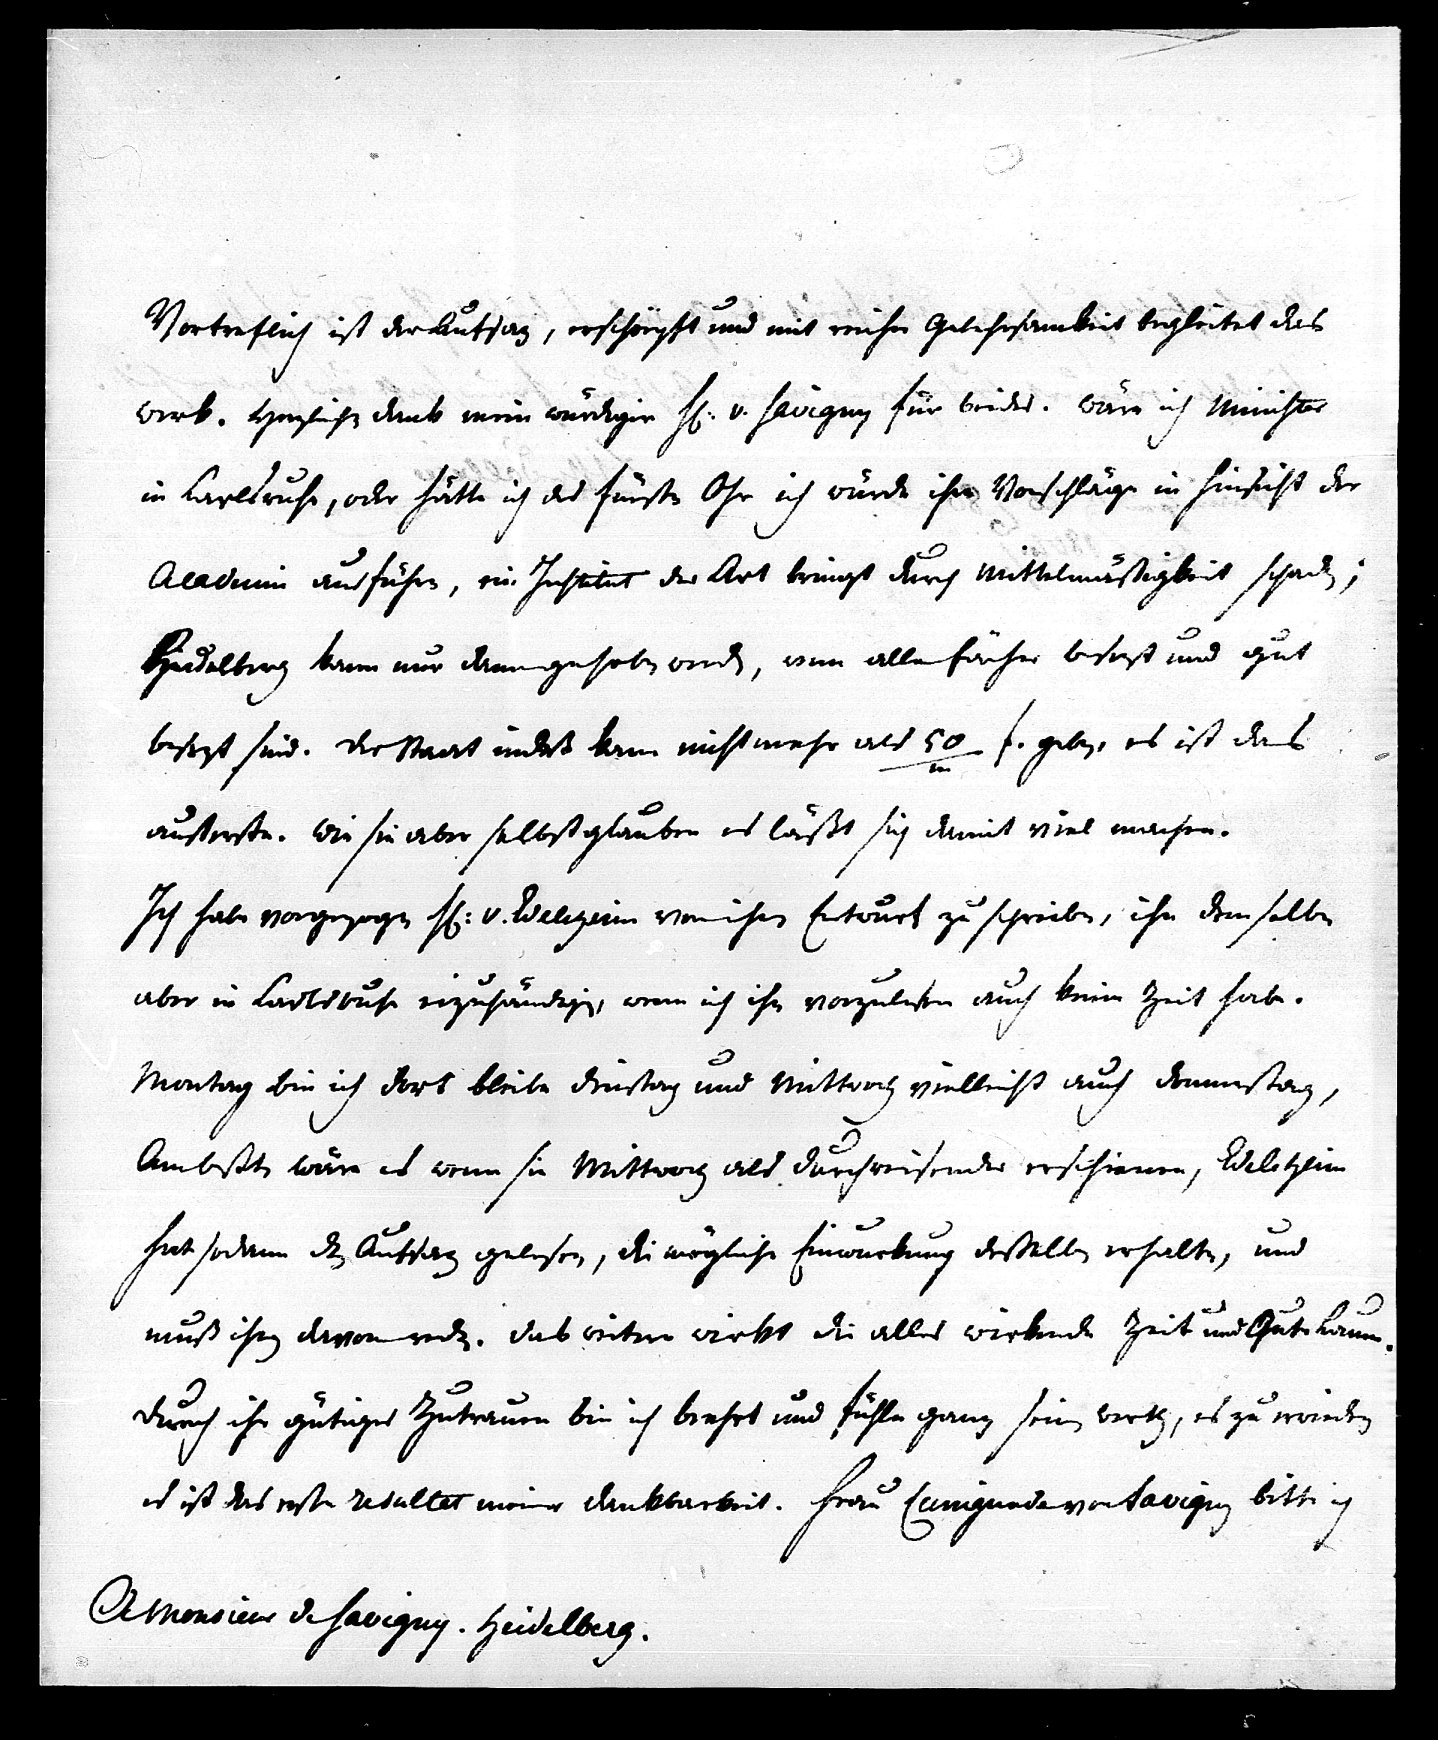 Vortreflich ist der Aufsaz, erschöpft und mit reicher Gelehrsamkeit begleitet das
werk. Herzlichen dank mein würdiger H: v. Savigny für beides. wäre ich Minister
in Carlsruhe, oder hätte ich des fürsten Ohr ich würde ihre Vorschläge in hinsicht der
Academie ausführen, ein Institut der Art bringt durch Mittelmäßigkeit schaden;
Heidelberg kann nur dann gehoben werden, wenn alle fächer besezt und gut
besezt sind. der Staat indeß kann nicht mehr als 50/m f. geben, es ist das
äusserste. Wie sie aber selbst glauben es läßt sich damit viel machen.
Ich habe vorgezogen H: v. Edelsheim von ihrem Entwurf zu schreiben, ihn demselben
aber in Carlsruhe einzuhändigen, wenn ich ihn vorzulesen auch keine Zeit habe.
Montag bin ich dort bleibe dinstag und Mittwoch vielleicht auch donnerstag,
Am besten wäre es wenn sie Mittwoch als durchreisender erschienen, Edelsheim
hat sodann den Aufsaz gelesen, die mögliche Einwürkung desselben erhalten, und
muß ihnen davon reden. das weitere wirkt die alles wirkende Zeit und Gute Laune.
durch ihr gütiges Zutrauen bin ich beehrt und fühle ganz seinen werth, es zu erwiedern
es ist das erste resultat meiner dankbarkeit. Frau Cunigunde von Savigny bitte ich
A Monsieur de Savigny. Heidelberg.